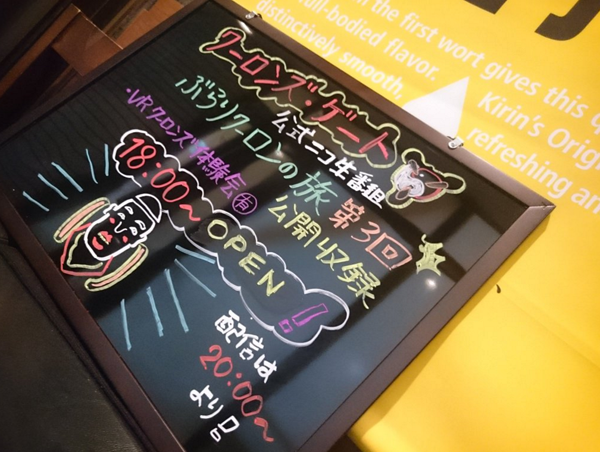 クーロンズ・ゲート
公式ニコ生番組
ぶらりクーロンの旅 第3回
公開収録
・VRクーロンズ体験会㊒
18:00〜 OPEN!
配信は
20:00〜
より
the first wort gives this
full-bodied flavor.
distinctively smooth,
Kirin's Orig
refreshing an